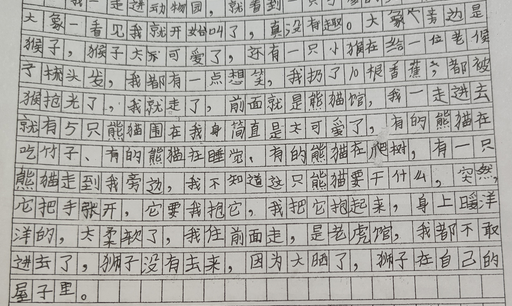 一走进动物园，就看到一只
大象一看见我就开始叫了，真没有趣。大象旁边是
猴子，猴子太可爱了，还有一只小猴在给一位老猴
子摘头发，我都有一点想笑，我扔了10根香蕉，都被
猴抢光了，我就走了，前面就是熊猫馆，我一走进去
就有5只熊猫围在我身简直是太可爱了，有的熊猫在
吃竹子、有的熊猫在睡觉、有的熊猫在爬树，有一只
熊猫走到我旁边，我不知道这只熊猫要干什么，突然，
它把手张开，它要我抱它，我把它抱起来，身上暖洋
洋的，太柔软了，我往前面走，是老虎馆，我都不敢
进去了，狮子没有去来，因为太晒了，狮子在自己的
屋子里。